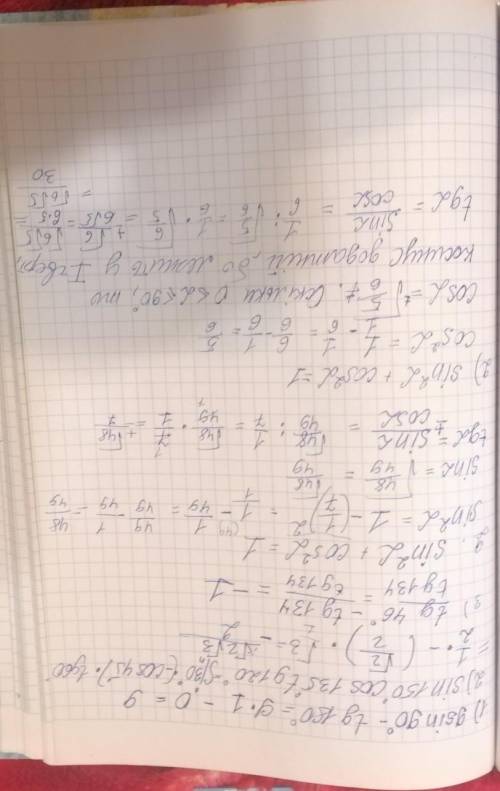 1) 9sin90° - tg180° = 9·1 - 0 = 9
2) sin150° cos135° tg120° = sin30°·(-cos45°)·tg60°
= 1/2 · -(√2/2) · √3 = - √2√3
3) tg46°/tg134 = -tg134/tg134 = -1
2. sin²α + cos²α = 1
sin²α = 1 - (1/7)² = 1/1 - 1/49 = 49/49 - 1/49 = 48/49
sinα = √48/49 = √48/49
tgα = sinα/cosα = √48/49 : 1/7 = √48/49 · 7/1 = ±√48/7
2) sin²α + cos²α = 1
cos²α = 1/1 - 1/6 = 6/6 - 1/6 = 5/6
cosα = √5/6. Оскільки 0≤α≤90°, то
косинус додатній, бо лежить у I чверті
tgα = sinα/cosα = 1/6 : √5/6 = 1/6 · √6/5 = √6/6√5 = √6√5/6·5 =
= √6√5/30